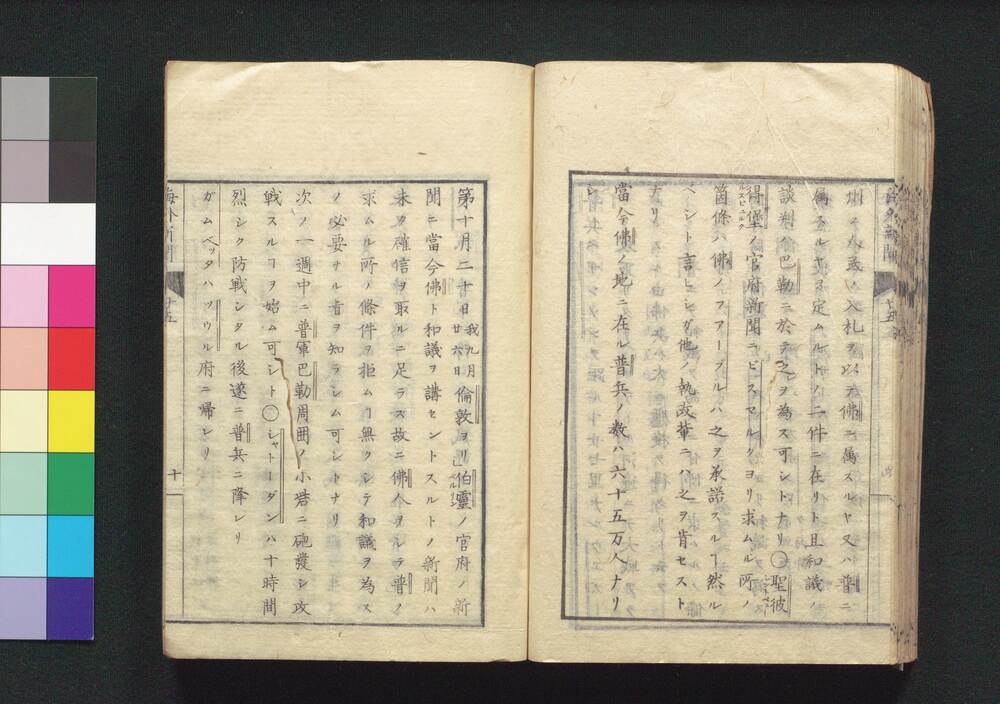 州ヲ人民ノ入札ヲ以テ佛ニ属スルヤ又ハ普ニ
属スルヤヲ定ムルトノ二件ニ在リト且和議ノ
談判ハ巴勒ニ於テ之ヲ為ス可シトナリ〇聖彼
得堡ノ官府新聞ニビスマルクヨリ求ムル所ノ
箇條ハ佛ノファーブルハ之ヲ承諾スルヿ然ル
ヘーシト言ヒシガ他ノ執政輩ニハ之ヲ肯セスト
當今佛ノ地ニ在ル普兵ノ数ハ六十五万人ナリ
海外新聞
第十月二十日我九月廿六日倫敦ヨリ伯靈ノ官府ノ新
聞ニ當今佛ト和議ヲ講セントスルトノ新聞ハ
未タ確信ヲ取ルニ足ラス故ニ佛今ヨルシテ普ノ
求ムル所ノ條件ヲ拒ムヿ無クシテ和議ヲ為ス
ノ必要ナル者ヲ知ラシム可シトナリ
次ノ一週中ニ普軍巴勒周囲ノ小砦ニ砲發シ攻
戦スルヿヲ始ム可シト〇シャトーダンハ十時間
烈シク防戦シタル後遂ニ普兵ニ降レリ
ガムベッタハツウル府ニ帰レリ
海外新聞
十五
十